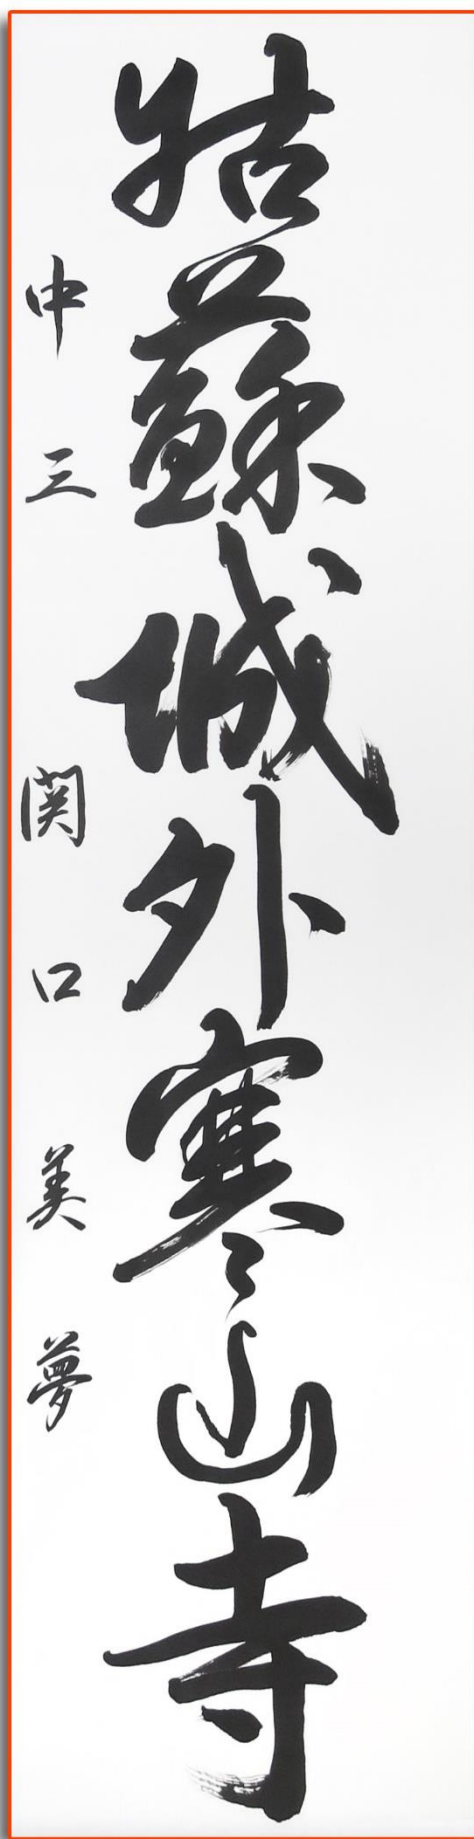 姑蘇城外寒山寺
中三 関口美夢